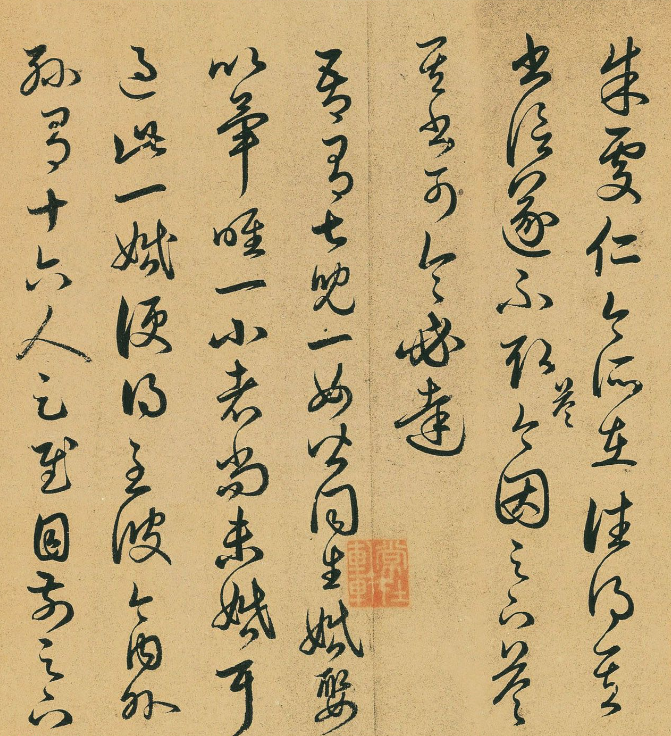 朱處仁今所在往得其
書信遂不取答今因足下答
其書可令必達
吾有七兒一女皆同生婚娶
以畢唯一小者尚未婚耳
過此一婚便得至彼今內外
孫有十六人足慰目前足下